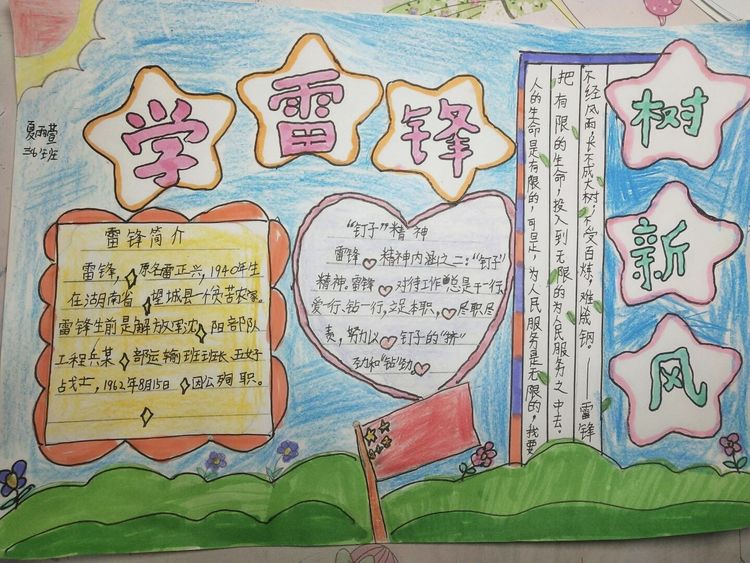 学雷锋
树新风
夏雨萱
雷锋简介
雷锋,原名雷正兴,1940年生
在湖南省望城县一个贫苦农家。
雷锋生前是解放军沈阳部队
工程兵某部运输班班长五好
战士,1962年8月15日因公殉职。
“钉子”精神
雷锋精神内涵之二:“钉子”
精神。雷锋对待工作总是干一行,
爱一行、钻一行,立足本职,尽职尽
责,努力以钉子的“挤”
劲和“钻”劲
人的生命是有限的,可是,为人民服务是无限的,我要
把有限的生命,投入到无限的为人民服务之中去。
不经风雨,长不成大树;不受百炼,难成钢。 雷锋